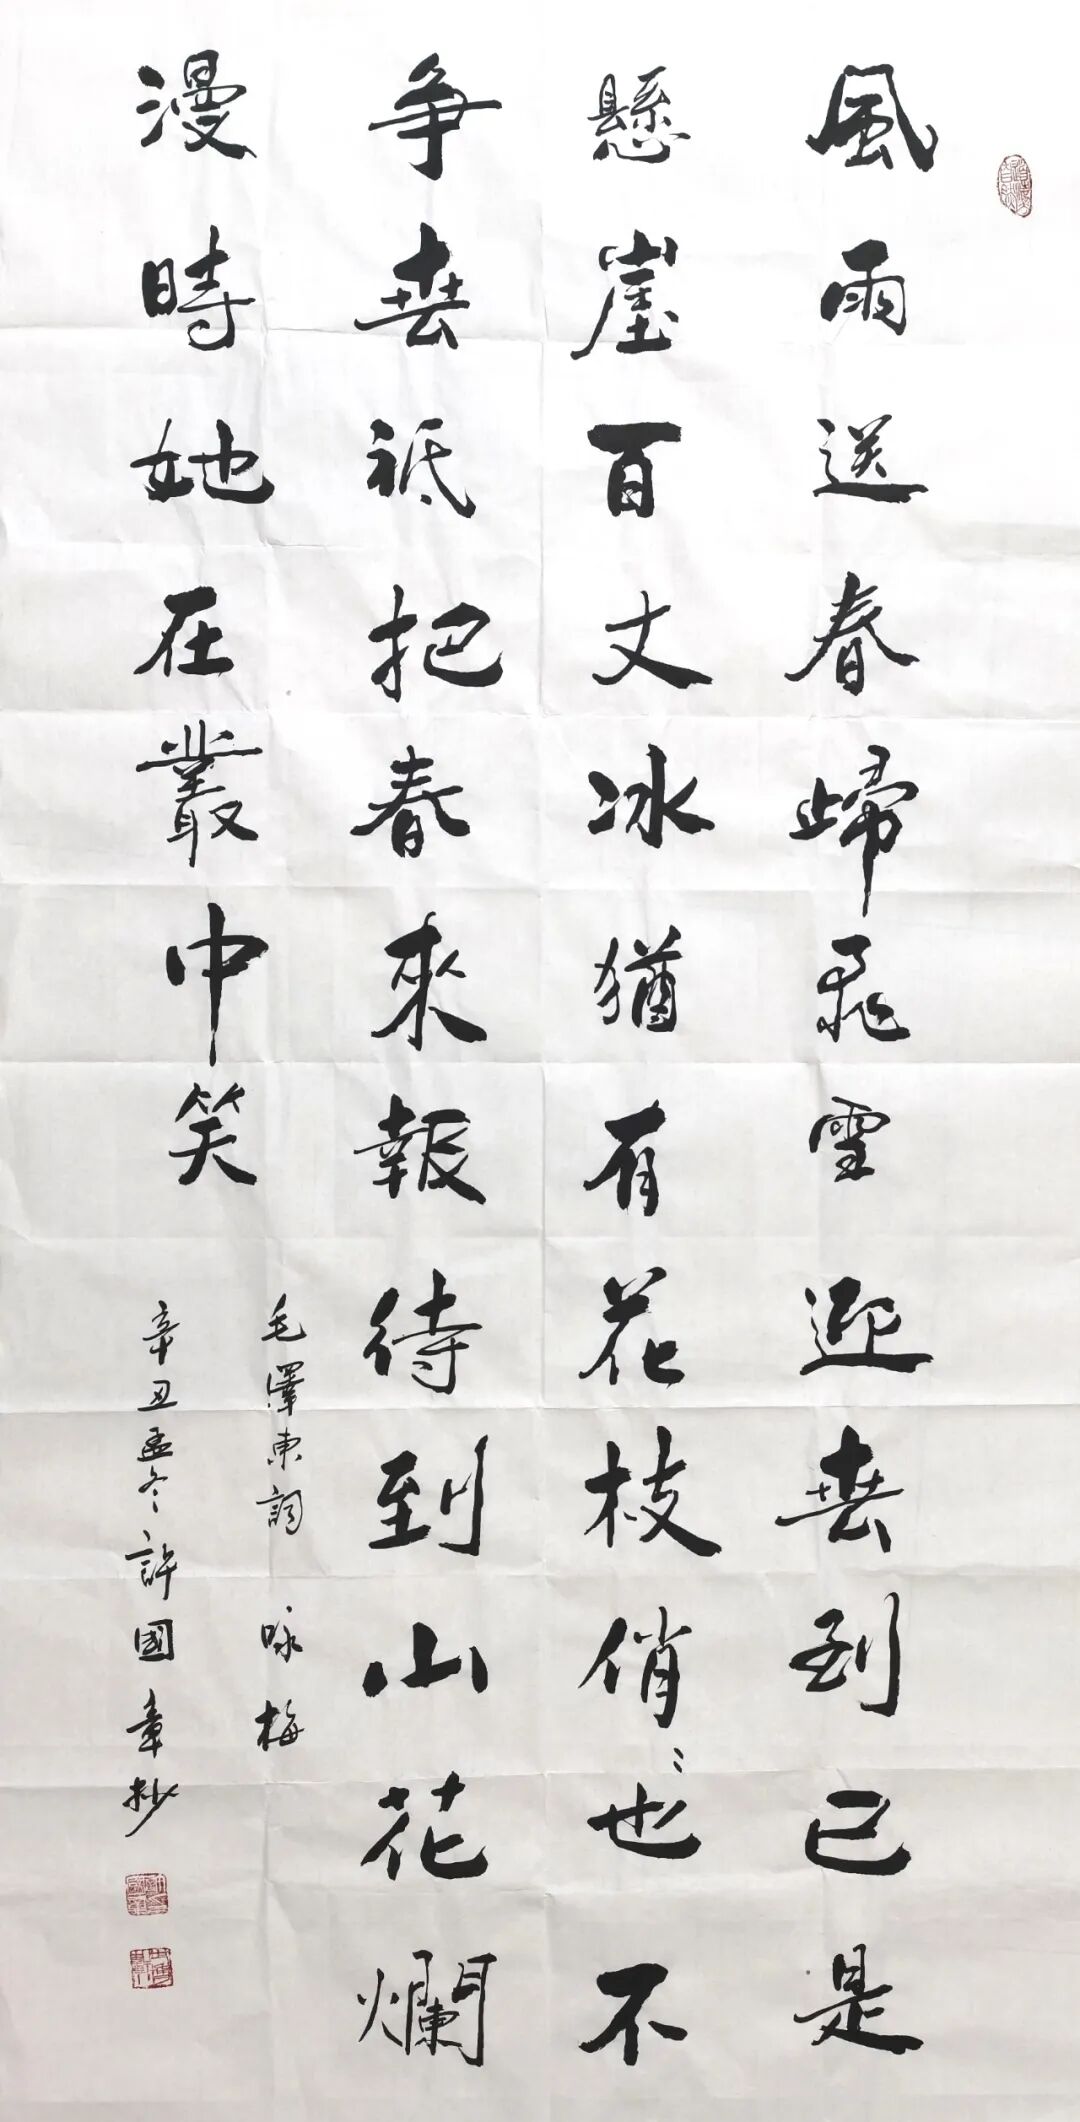 風雨送春歸飛雪迎春到已是
懸崖百丈冰猶有花枝俏〻也不
争春祇把春來報待到山花爛
漫時她在叢中笑
毛澤東詞 咏梅
辛丑孟冬許國章抄